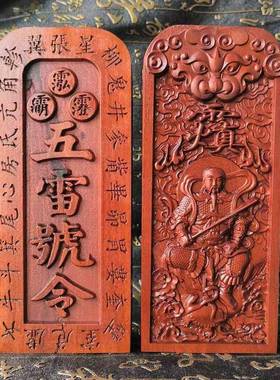 五雷號令
角亢氐房心尾箕斗牛女
虛危室
壁奎婁胃昴畢觜參井鬼
柳星張翼軫